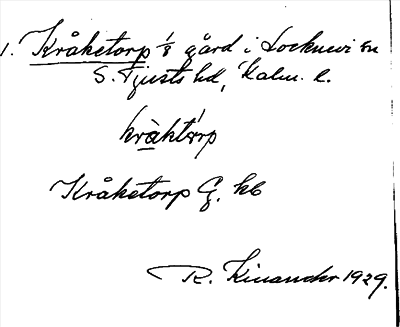 1. Kråketorp 1/8 gård i Locknevi sn
S. Tjusts hd, Kalm. l.
kràktórp
Kråketorp G. kb
R. Kinander 1929.